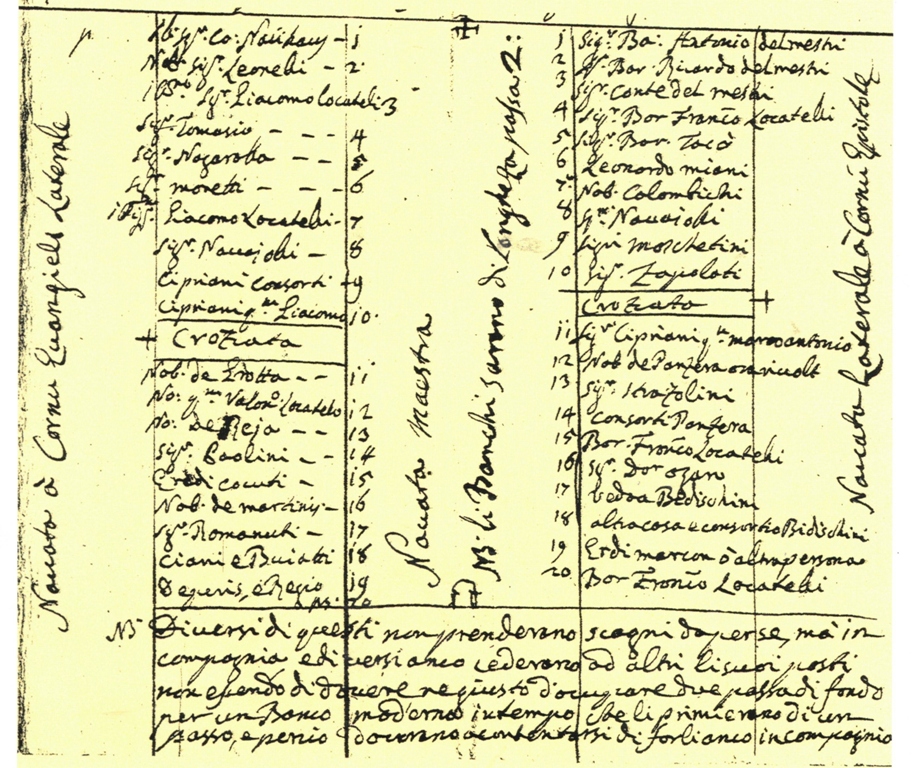 Navata à Cornu Evangielo Laterale
Sigr. Co:
Nob. Sigr. Leonelli - 2
Sgr. Giacomo Locatelli 3
Sigr. Tomasio - - - 4
Sigr. Nogarolla - - 5
Sigr. moretti - - - 6
Giacomo Locatelli - 7
Sigr. Navajolli - 8
Cipriani consorti - 9
Cipriani qm. Giacomo 10
+ Crotiata
Nob. de Grotta - - 11
No: qm. Locatelo 12
No: de - - 13
Sigr. Paolini - - 14
Eredi cocuti - 15
Nob. de martinis - 16
Sgr. Romanuti - 17
Ciani e Buiatti 18
Deperis, e Regio 19
20
Navata Maestra
NB. li Banchi sarano di longheza passa 2:
1 Sigr. Ba: Antonio del mestri
2 Sr. Bar. Ricardo del mestri
3 Sigr. Conte del mestri
4 Sigr. Bor Franco Locatelli
5 Sigr. Bar. Tacò
6 Leonardo miani
7 Nob. Colombichi
8 qm Navajolli
9 Sigri moschetini
10 Sigr. Zapolati
Crotiata +
11 Sigr. Cipriani qm marco antonio
12 Nob de Panzera
13 Sigr. Strasolini
14 Consorti Panzera
15 Bor. Franco Locatelli
16 Sgr. Dor ozan
17 Vedoa Bedischini
18 altra cosa e consortio Bidischini
19 Erdi marcon ò altra persona
20 Bor Franco Locatelli
Navata Laterale à Cornu Epistole
NB Diversi di questi non prenderano scagni da perse, mà in
compagnia e diversi anco cederano ad altri li suoi posti
non essendo di dovere ne giusto d'ocupare due passa di fondo
per un Banco moderno in tempo che li primi erano di un
passo, e perciò doverano acontentarsi di farli anco in compagnia